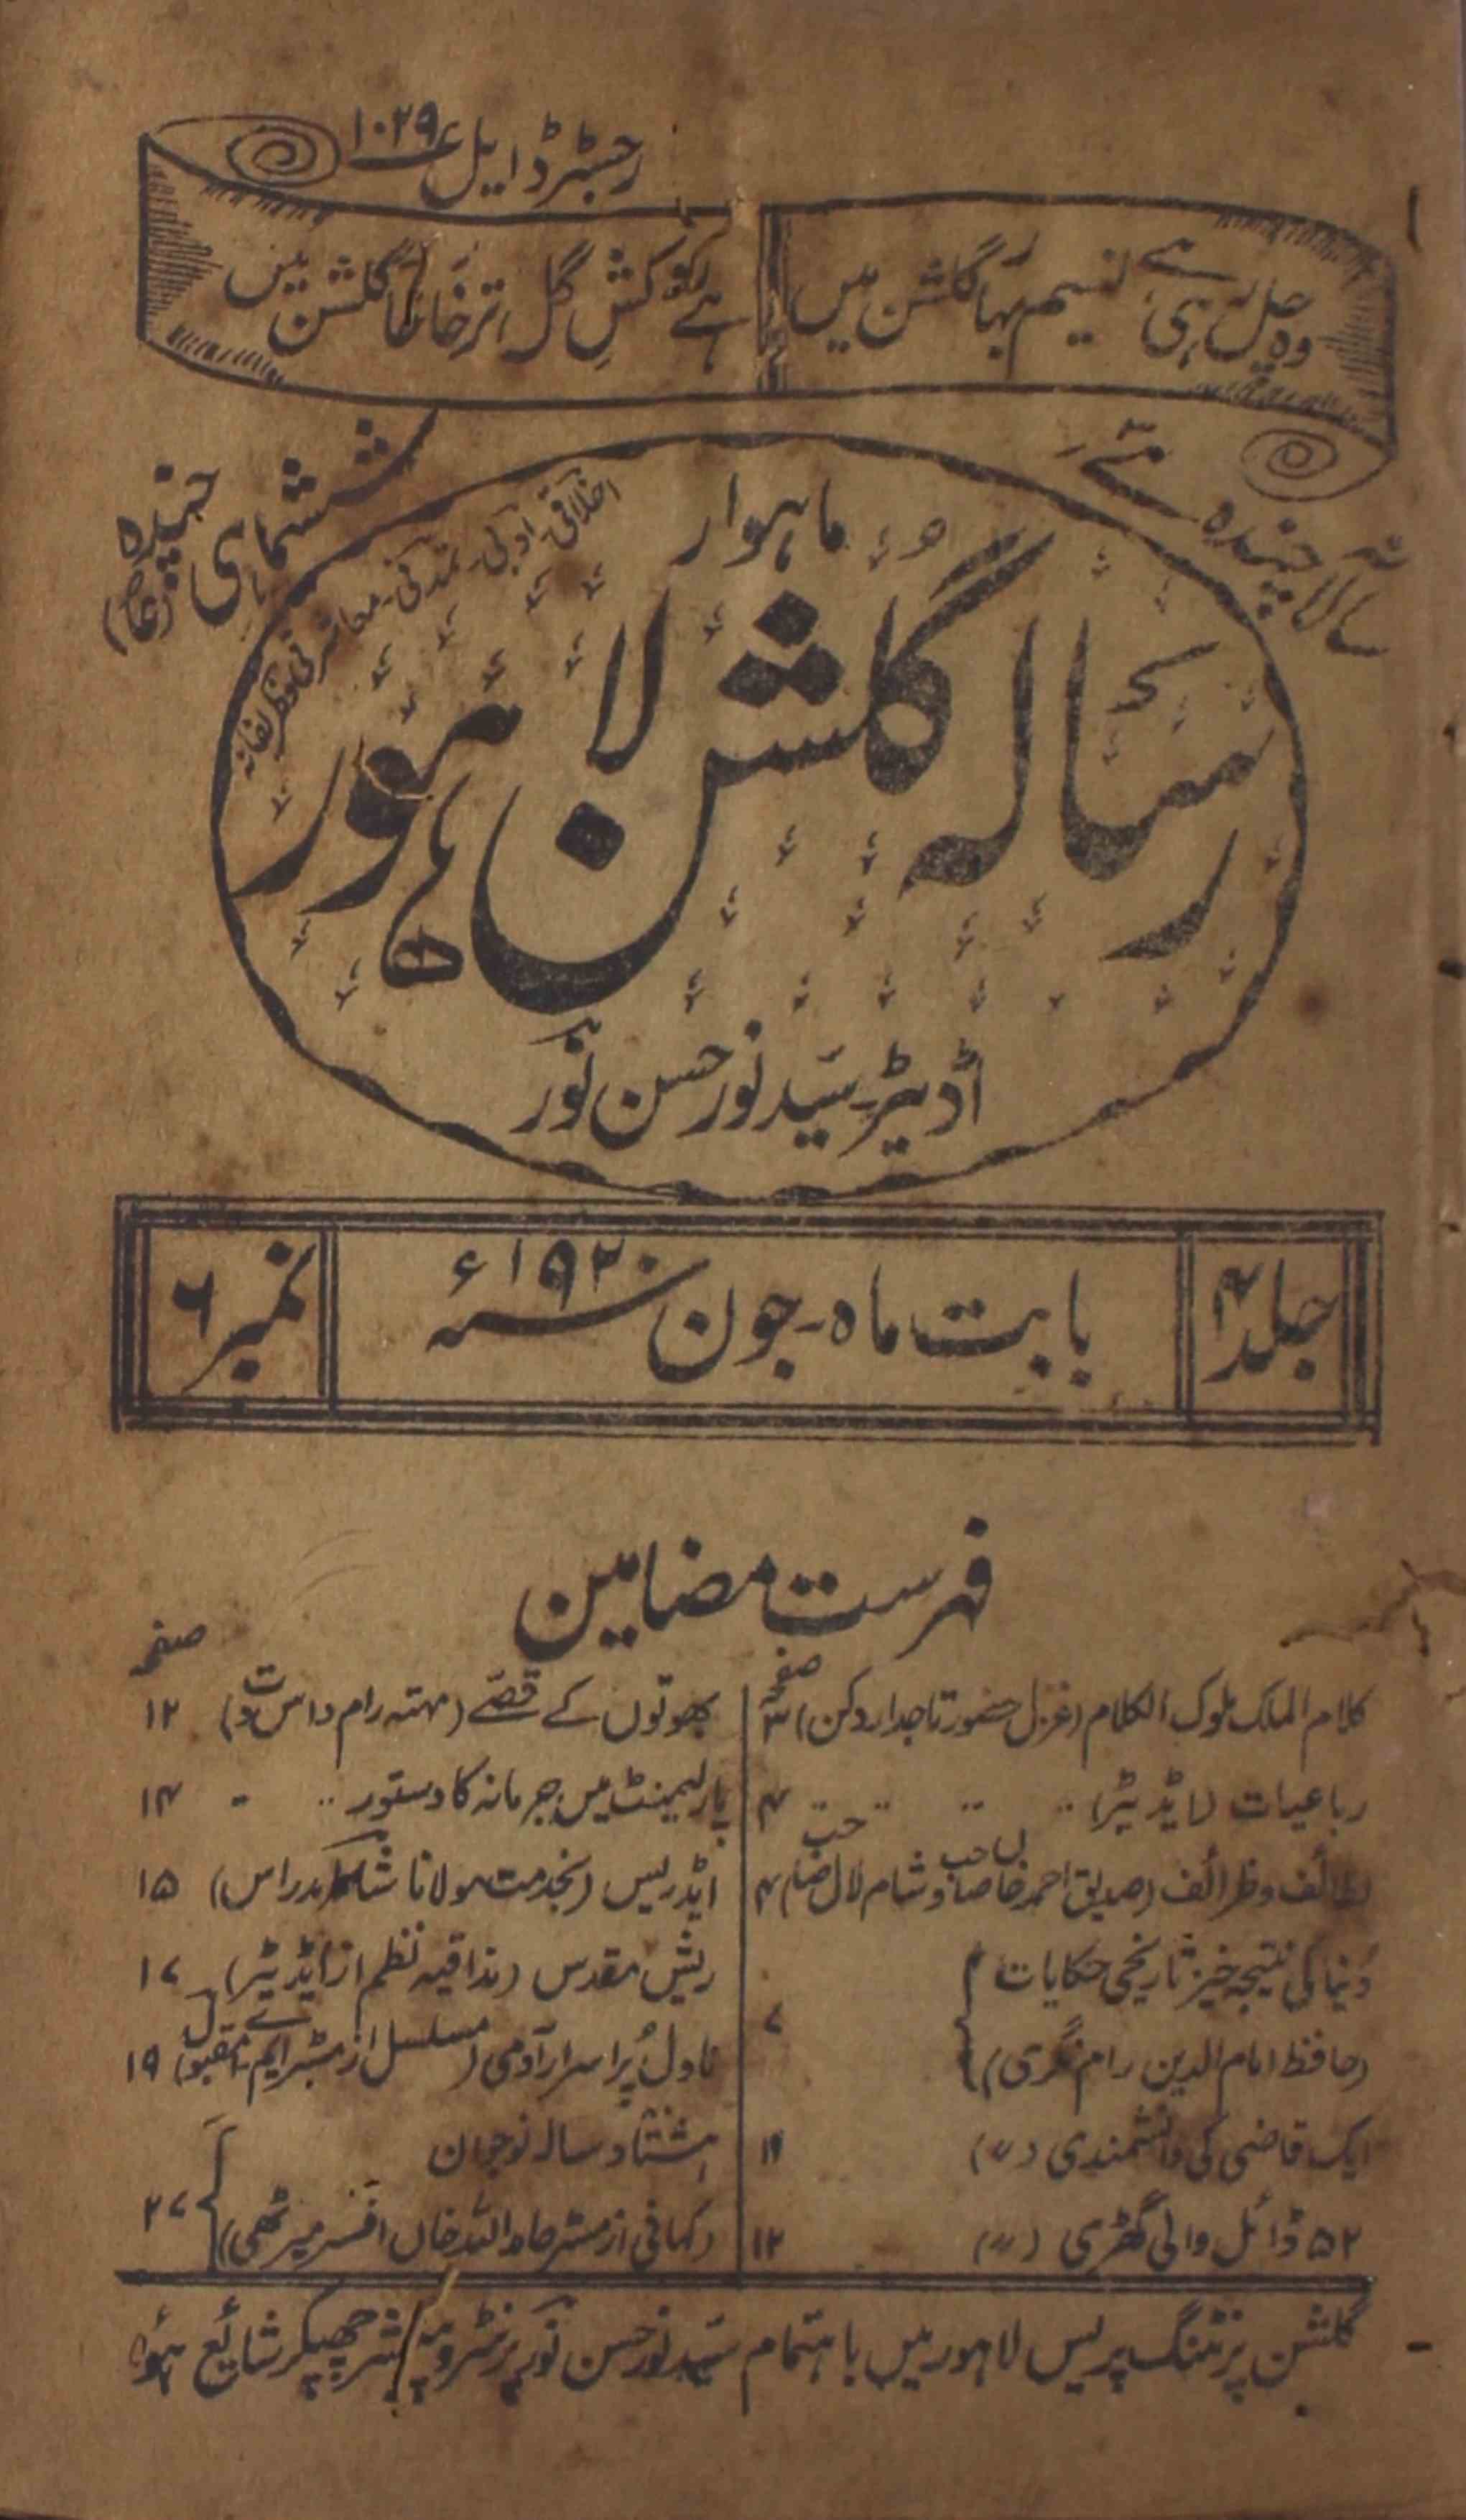 رجسٹرڈ ایل ۱۰۲۹
وہ چل رہی ہے نسیم بہار گلشن میں
ہے کش گل تر خار گلشن میں
سالانہ چندہ
ششماہی چندہ
ماہوار
اخلاقی۔ ادبی۔ تمدنی۔ معاشرتی وظریفانہ
رسالہ گلشن لاہور
اڈیٹر۔ سید نور حسن نور
جلد ۴
بابت ماہ۔ جون سنہ ۱۹۲۰ء
نمبر ۶
فہرست مضامین
صفحہ
کلام الملک ملوک الکلام (غزل حضور تاجدار دکن) ۳
رباعیات (ایڈیٹر) ۴
لطائف وظرائف (صدیق احمد خاصاحب وشام لال صاحب) ۴
دنیا کی نتیجہ خیز تاریخی حکایات
(حافظ امام الدین رام نگری) ۷
ایک قاضی کی دانشمندی (〃) ۱۱
۵۲ ڈائل والی گھڑی (〃) ۱۲
صفحہ
بھوتوں کے قصے (مہتہ رام داس دت) ۱۲
پارلیمنٹ میں جرمانہ کا دستور ۱۴
ایڈریس (بخدمت مولانا شاکر مدراس) ۱۵
ریش مقدس (مذاقیہ نظم از ایڈیٹر) ۱۷
ناول پُراسرار آدمی (مسلسل از مسٹر ایم۔ اے مقبول) ۱۹
رسالہ نوجوان
(کہانی از مسٹر حامد اللہ خاں افسر میرٹھی) ۲۷
گلشن پرنٹنگ پریس لاہور میں باہتمام سید نور حسن نور پرنٹر و پبلشر چھپکر شائع ہوا